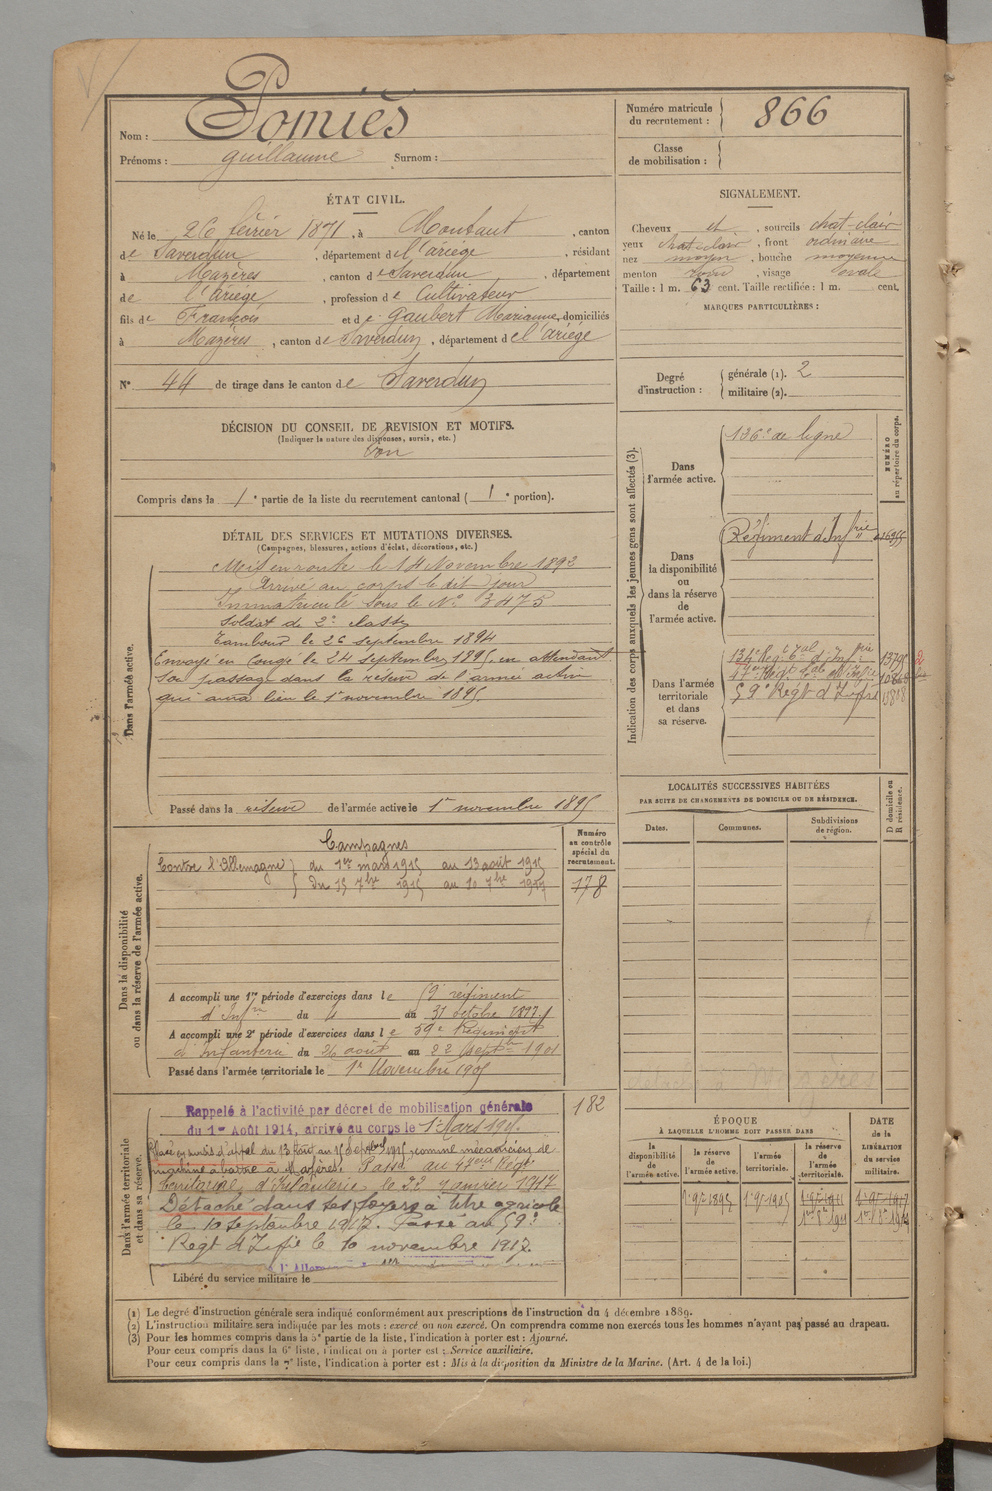 Nom : Pomiès
Prénoms : guillaume Surnom :
Numéro matricule du recrutement : 866
Classe de mobilisation :
ÉTAT CIVIL.
Né le 26 février 1871, à Montaut, canton
de Saverdun, département de l'ariége, résidant
à Mazères, canton de Saverdun, département
de l'ariége, profession de Cultivateur
fils de François et de gaubert Marianne, domiciliés
à Mazères, canton de Saverdun, département de l'ariége
N° 44 de tirage dans le canton de Saverdun
SIGNALEMENT.
Cheveux et, sourcils chat-clair
yeux chat-clair, front ordinaire
nez moyen, bouche moyenne
menton rond, visage ovale
Taille : 1 m. 63 cent. Taille rectifiée : 1 m. cent.
MARQUES PARTICULIÈRES :
Degré d'instruction : générale (1). 2
militaire (2).
DÉCISION DU CONSEIL DE REVISION ET MOTIFS.
(Indiquer la nature des dispenses, sursis, etc.)
bon
Compris dans la 1e partie de la liste du recrutement cantonal ( 1e portion).
DÉTAIL DES SERVICES ET MUTATIONS DIVERSES.
(Campagnes, blessures, actions d'éclat, décorations, etc.)
Dans l'armée active.
Mis en route le 14 Novembre 1892
Arrivé au corps le dit jour
Immatriculé sous le N° 3475
Soldat de 2e classe
Tambour le 26 septembre 1894
Envoyé en congé le 24 septembre 1895, en attendant
son passage dans la réserve de l'armée active
qui aura lieu le 1er novembre 1895.
Passé dans la réserve de l'armée active le 1er novembre 1895
Indication des corps auxquels les jeunes gens sont affectés (3).
NUMÉRO au répertoire du corps.
Dans l'armée active.
136e de ligne
Dans la disponibilité ou dans la réserve de l'armée active.
Régiment d'Infrie
Dans l'armée territoriale et dans sa réserve.
134e Reg. Tal d'Infrie
59e Regt d'Infie
LOCALITÉS SUCCESSIVES HABITÉES
PAR SUITE DE CHANGEMENTS DE DOMICILE OU DE RÉSIDENCE.
D domicile ou R résidence.
Dates. Communes. Subdivisions de région.
Dans la disponibilité ou dans la réserve de l'armée active.
Numéro au contrôle spécial du recrutement.
178
Campagnes
Contre l'Allemagne du 1er mars 1915 au 13 août 1915
du 15 7bre 1915 au 10 7bre 1917
A accompli une 1re période d'exercices dans le 59 régiment
d'Infrie du 4 au 31 octobre 1897
A accompli une 2e période d'exercices dans le 59e Régiment
d'Infanterie du 26 août au 22 septbre 1901
Passé dans l'armée territoriale le 1er Novembre 1905
Dans l'armée territoriale et dans sa réserve.
182
Rappelé à l'activité par décret de mobilisation générale
du 1er Août 1914, arrivé au corps le 1er Mars 1915.
Placé en sursis d'appel du 13 août au 15 septbre 1915 comme mécanicien de
machine à battre à Mazères. Passé au 47eme Régt
territorial d'Infanterie le 22 janvier 1917
Détaché dans ses foyers à titre agricole
le 10 septembre 1917. Passé au 59e
Regt d'Infie le 10 novembre 1917.
Libéré du service militaire le
ÉPOQUE
À LAQUELLE L'HOMME DOIT PASSER DANS
la disponibilité de l'armée active.
la réserve de l'armée active.
l'armée territoriale.
la réserve de l'armée territoriale.
DATE de la LIBÉRATION du service militaire.
1er 9bre 1895
1er 9bre 1905
1er 9bre 1911
1er 9bre 1917
(1) Le degré d'instruction générale sera indiqué conformément aux prescriptions de l'instruction du 4 décembre 1889.
(2) L'instruction militaire sera indiquée par les mots : exercé ou non exercé. On comprendra comme non exercés tous les hommes n'ayant pas passé au drapeau.
(3) Pour les hommes compris dans la 5e partie de la liste, l'indication à porter est : Ajourné.
Pour ceux compris dans la 6e liste, l'indication à porter est : Service auxiliaire.
Pour ceux compris dans la 7e liste, l'indication à porter est : Mis à la disposition du Ministre de la Marine. (Art. 4 de la loi.)